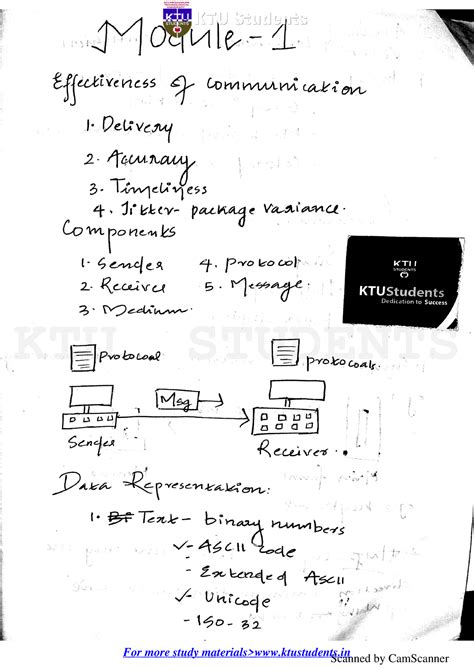 KTU Students
Module-1
Effectiveness of communication
1. Delivery
2. Accuracy
3. Timeliness
4. Jitter - package variance.
Components
1. Sender 4. Protocol
2. Receiver 5. Message.
3. Medium.
KTU
STUDENTS
KTUStudents
Dedication to Success
KTU STUDENTS
Protocoal protocoals.
Msg
Sender
Receiver.
Data Representation:
1. Text - binary numbers
✓- ASCII code
- Extended ASCII
✓- Unicode
- ISO-32
For more study materials>www.ktustudents.in
Scanned by CamScanner